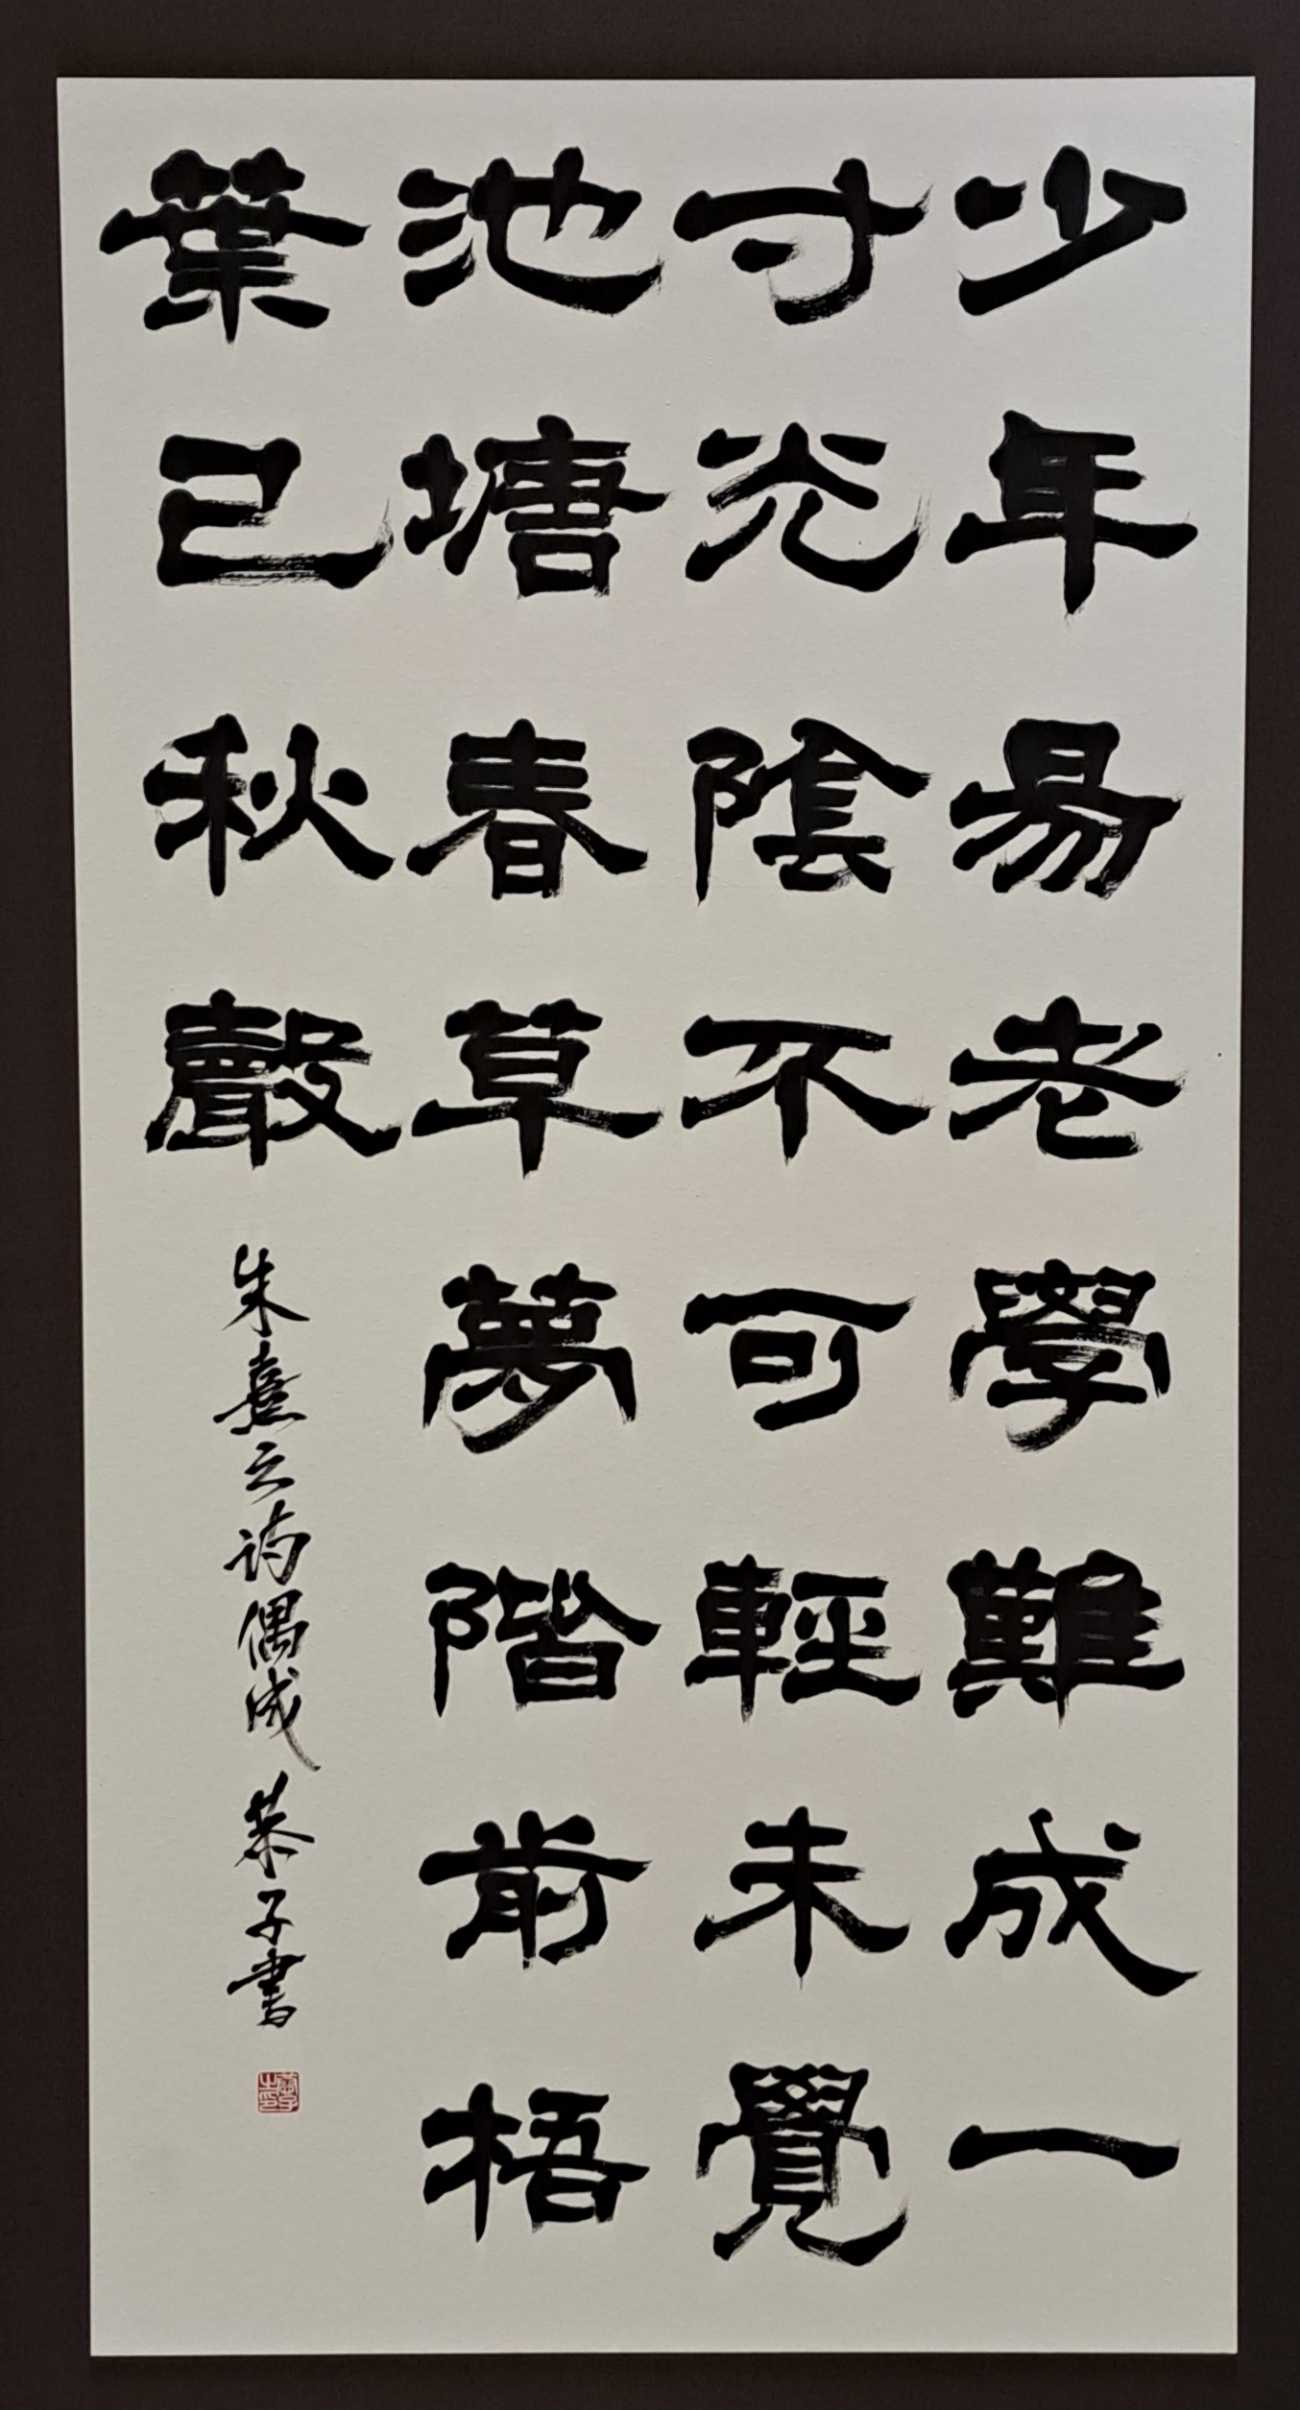 少年易老學難成一
寸光陰不可輕未覺
池塘春草夢階前梧
葉已秋聲
朱熹之詩偶成 恭子書